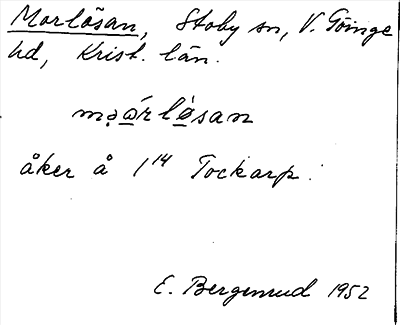 Morlösan, Stoby sn, V. Göinge
hd, Krist. län.
åker å 1¹⁴ Tockarp.
E. Bergenrud 1952